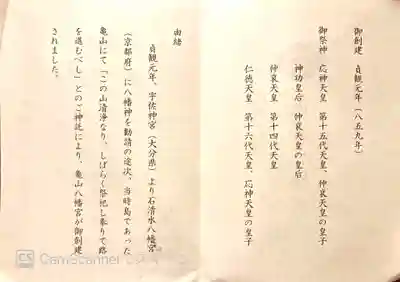 御創建　貞観元年（八五九年）
御祭神　応神天皇　第十五代天皇、仲哀天皇の皇子
神功皇后　仲哀天皇の皇后
仲哀天皇　第十四代天皇
仁徳天皇　第十六代天皇、応神天皇の皇子
由緒
貞観元年、宇佐神宮（大分県）より石清水八幡宮
（京都府）に八幡神を勧請の途次、当時島であった
亀山にて「この山清浄なり、しばらく祭祀し奉りて路
を進むべし」とのご神託により、亀山八幡宮が御創建
されました。
CamScannerでスキャン